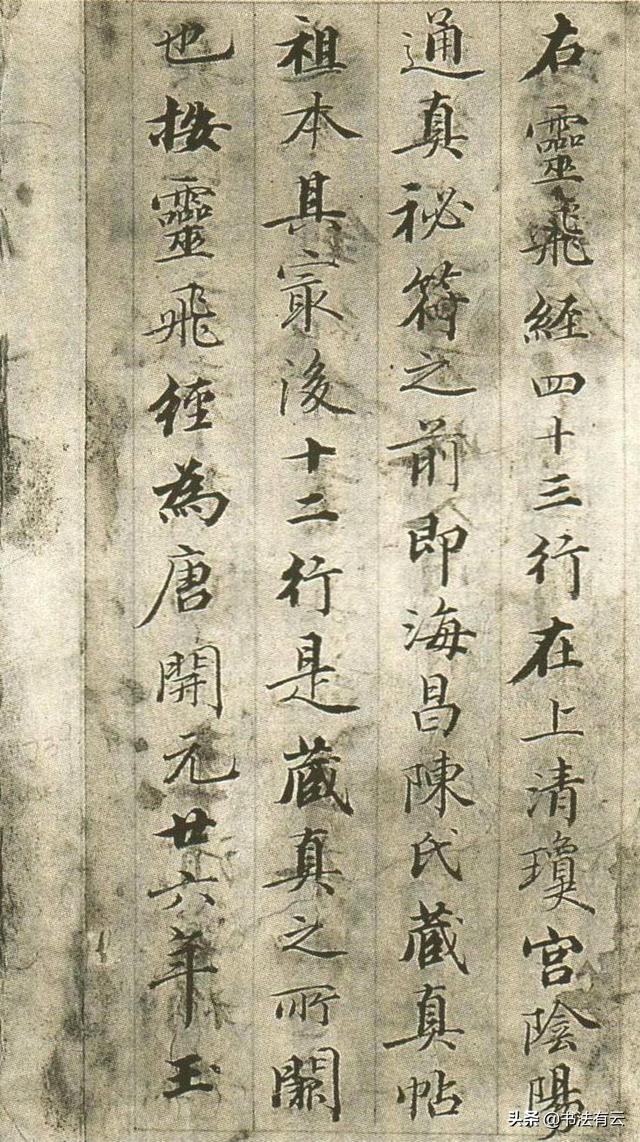 右靈飛經四十三行在上清瓊宮陰陽
通真祕符之前即海昌陳氏藏真帖
祖本其冣後十二行是藏真之所闕
也按靈飛經為唐開元廿六年玉
头条 @书法有云